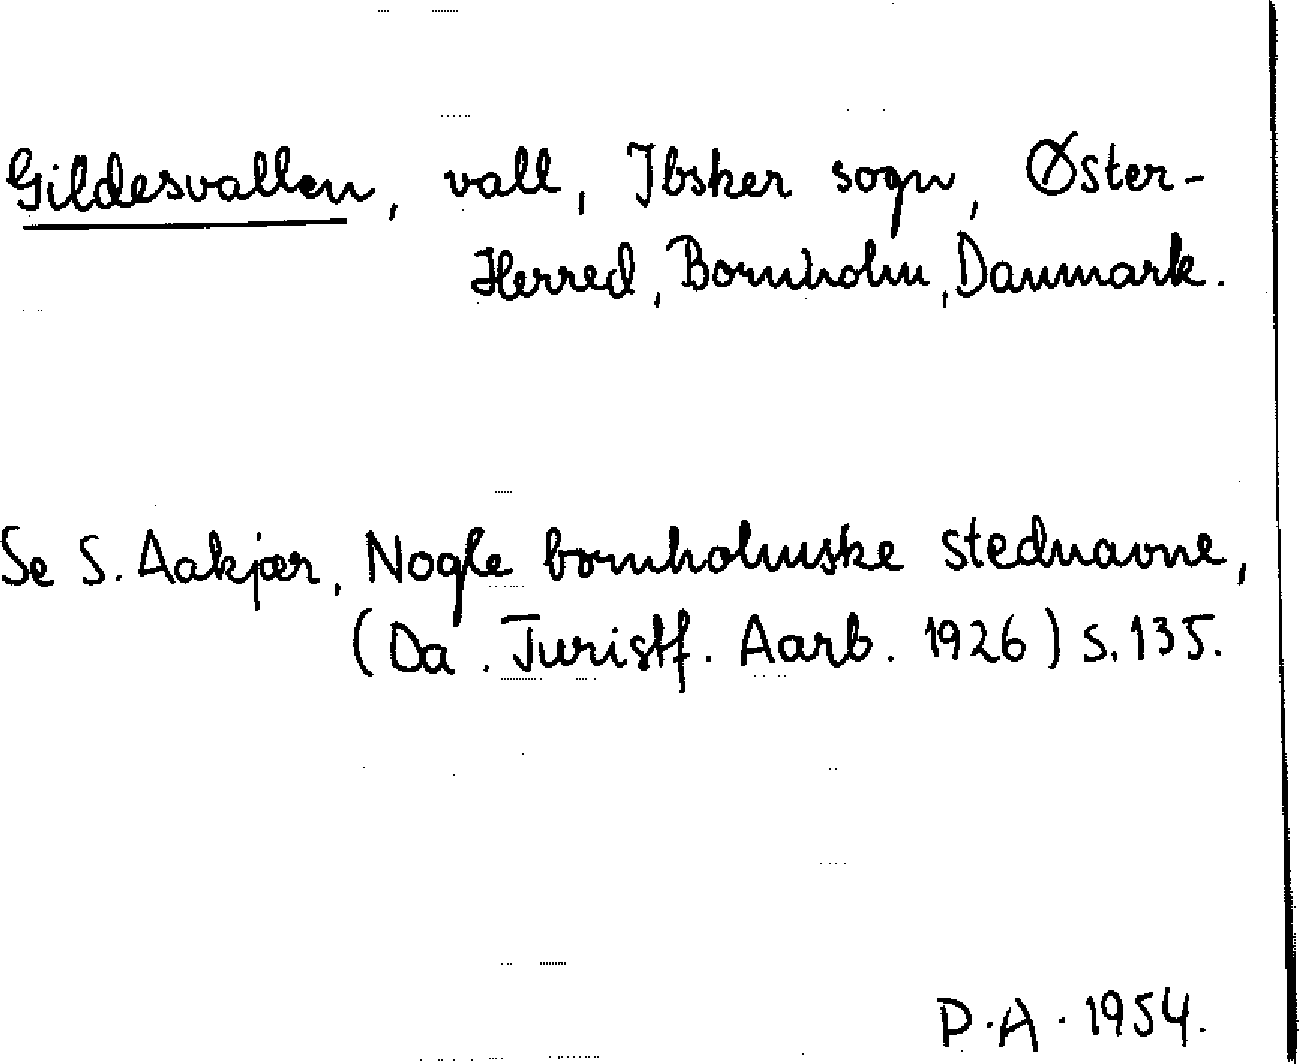 Gildesvallen, vall, Ibsker sogn, Øster-
Herred, Bornholm, Danmark.
Se S. Aakjær, Nogle bornholmske stednavne,
(Da. Turistf. Aarb. 1926) S. 135.
P.A. 1954.